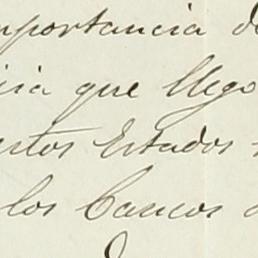 mportancia de
que llego
estos Estados
los Bancos